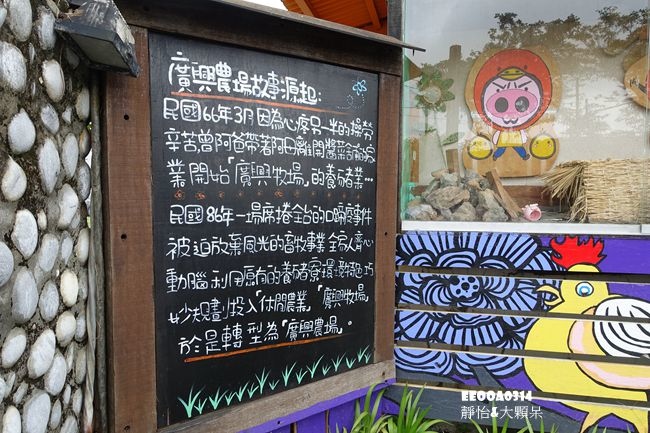 廣興農場故事源起:
民國66年3月因為心疼另一半的操勞
辛苦曾阿爸帶著
離開醬菜
業開始「廣興牧場」的養豬業…
民國86年一場席捲全台的口蹄疫事件
被迫放棄風光的畜牧事業全家人齊心
動腦利用原有的養豬寮環境特色巧
妙規劃投入「休閒農業」「廣興牧場」
於是轉型為「廣興農場」。
EEOOA0314
靜怡&大顆呆